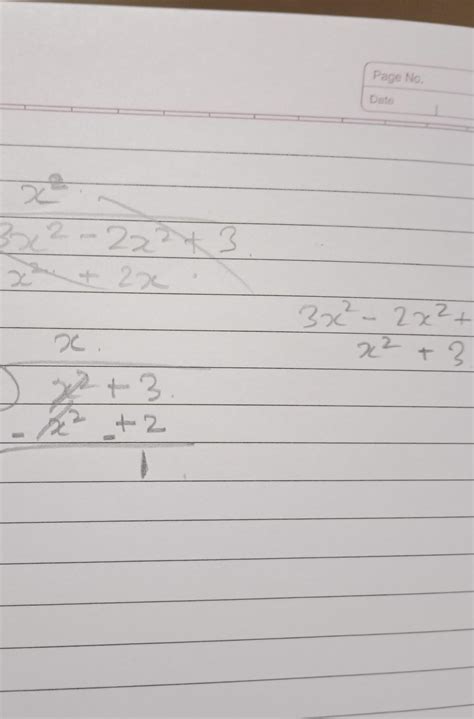 Page No.
Date
x²
3x² - 2x² + 3
x² + 2x
3x² - 2x² +
x² + 3
x
) x² + 3
- x² + 2
1